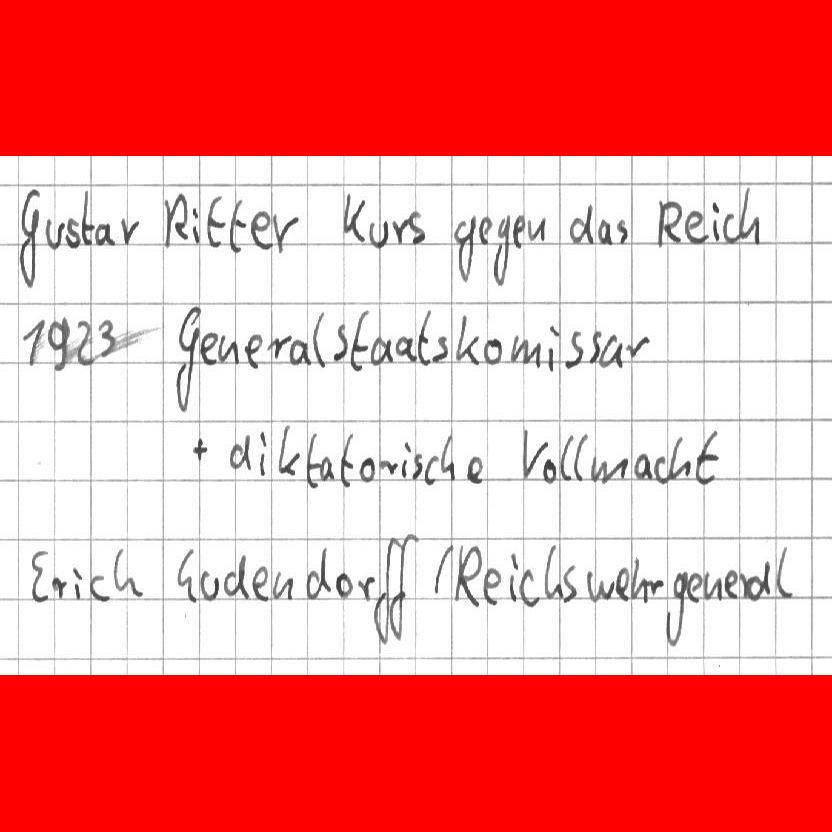 Gustav Ritter Kurs gegen das Reich
1923 Generalstaatskomissar
+ diktatorische Vollmacht
Erich Ludendorff (Reichswehrgeneral